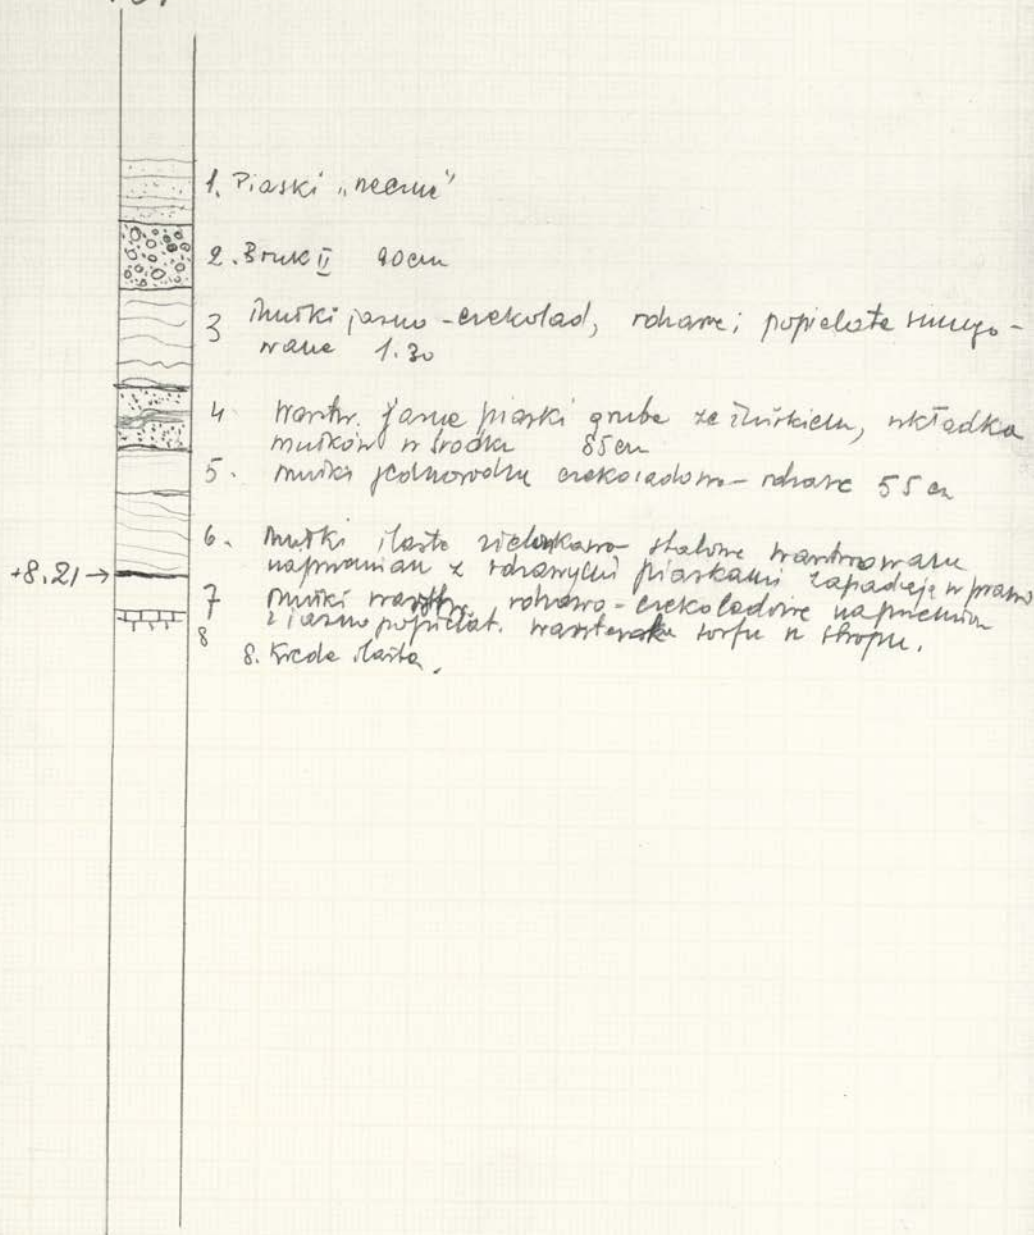 1. Piaski „rzeczne”
2. Bruk II 90cm
3 mułki jasno-czekolad, rdzawe; popielate smugo-
wane 1.30
4 warstw. jasne piaski grube ze żwirkiem, wkładka
mułków w środku 85cm
5. mułki jednorodne czekoladowo-rdzawe 55 cm
6. mułki ilaste zielonkawo-stalowe warstwowane
naprzemian z rdzawymi piaskami zapadają w prawo
+8.21→
7 mułki warstw. rdzawo-czekoladowe naprzemian
z jasno popielat. warstewka torfu w stropie.
8
8. Kreda ilasta.